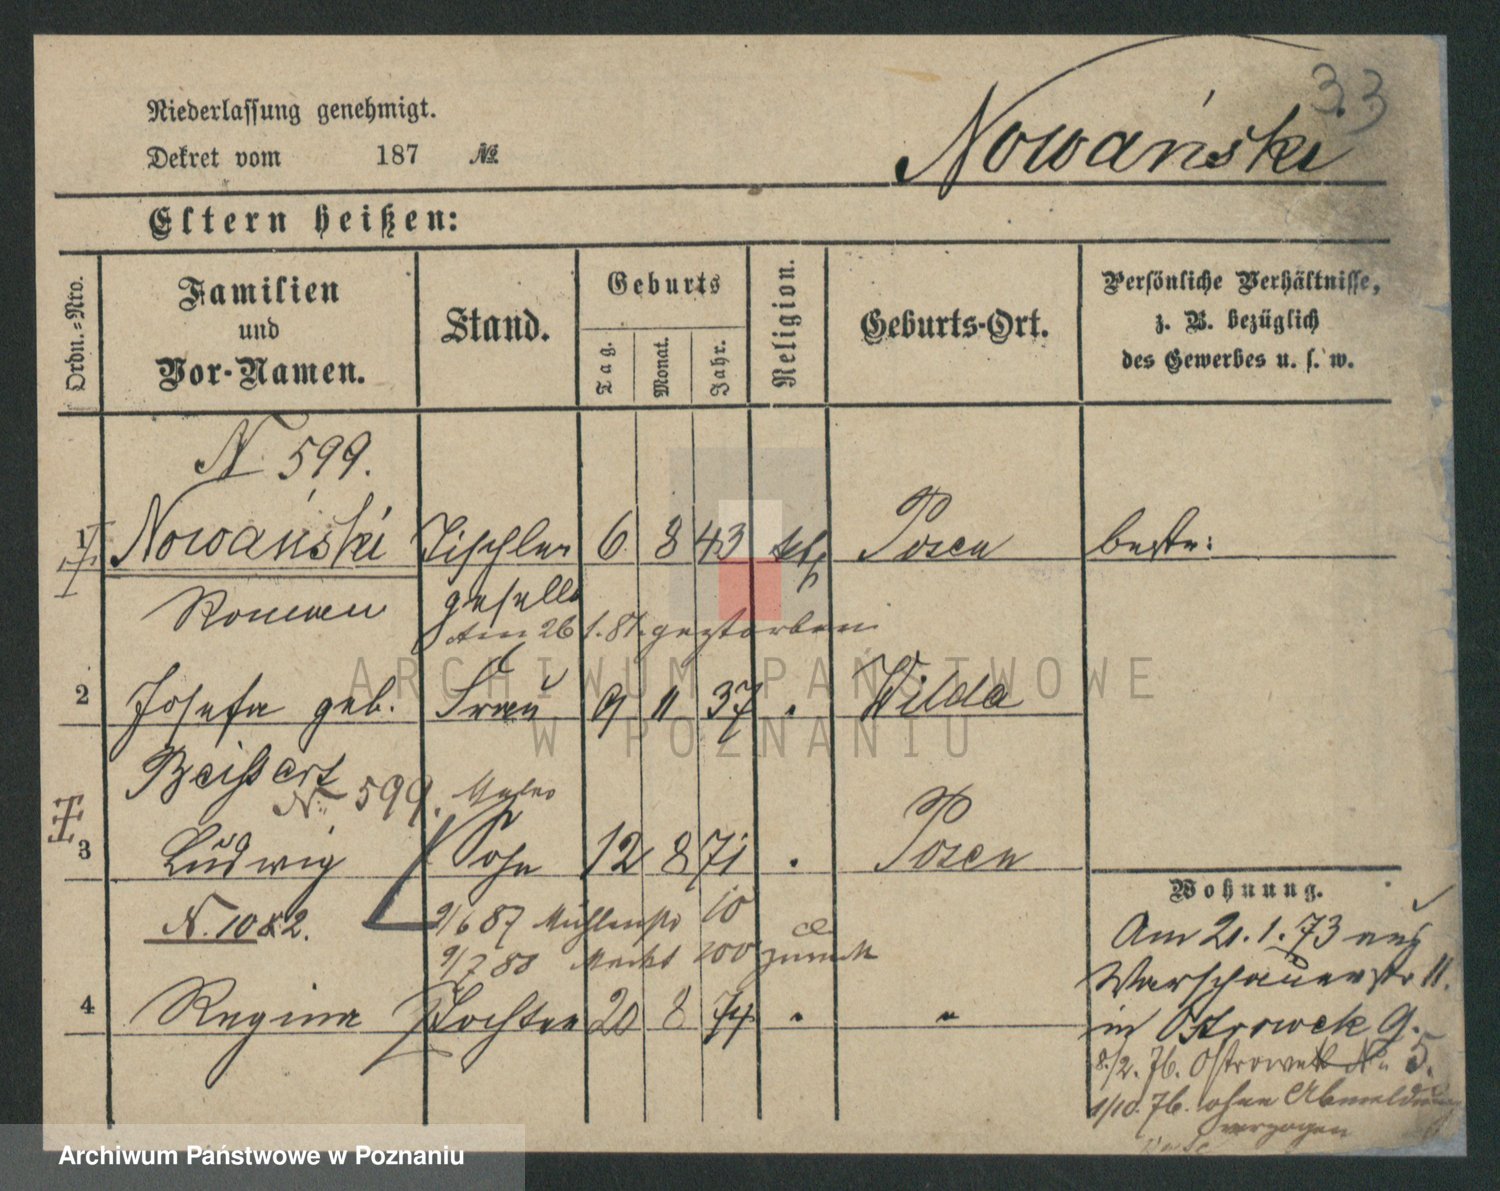 33
Niederlassung genehmigt.
Dekret vom 187 №
Nowański
Eltern heißen:
Ordn.=Nro.
Familien
und
Vor-Namen.
Stand.
Geburts
Tag.
Monat.
Jahr.
Religion.
Geburts-Ort.
Persönliche Verhältnisse,
z. B. bezüglich
des Gewerbes u. s. w.
N. 599.
1 Nowański Tischler 6 8 43 kth Posen
Roman geselle
Am 26 1. 81. gestorben
2 Josefa geb. Frau 9 11 37 Wilda
N. 599.
3 Ludwig Sohn 12 8 71 Posen
N. 1082.
2/6 87 Mühlenstr 10
9/7 88 Markt 100 zurück
4 Regina Tochter 20 8 74 "
Wohnung.
Am 21.1.73 aus
Warschauerstr 11.
in Ostrowek 9.
8./2. 76. Ostrowek No 5.
1/10. 76. ohne Abmeldung
verzogen
ARCHIWUM PAŃSTWOWE
W POZNANIU
Archiwum Państwowe w Poznaniu